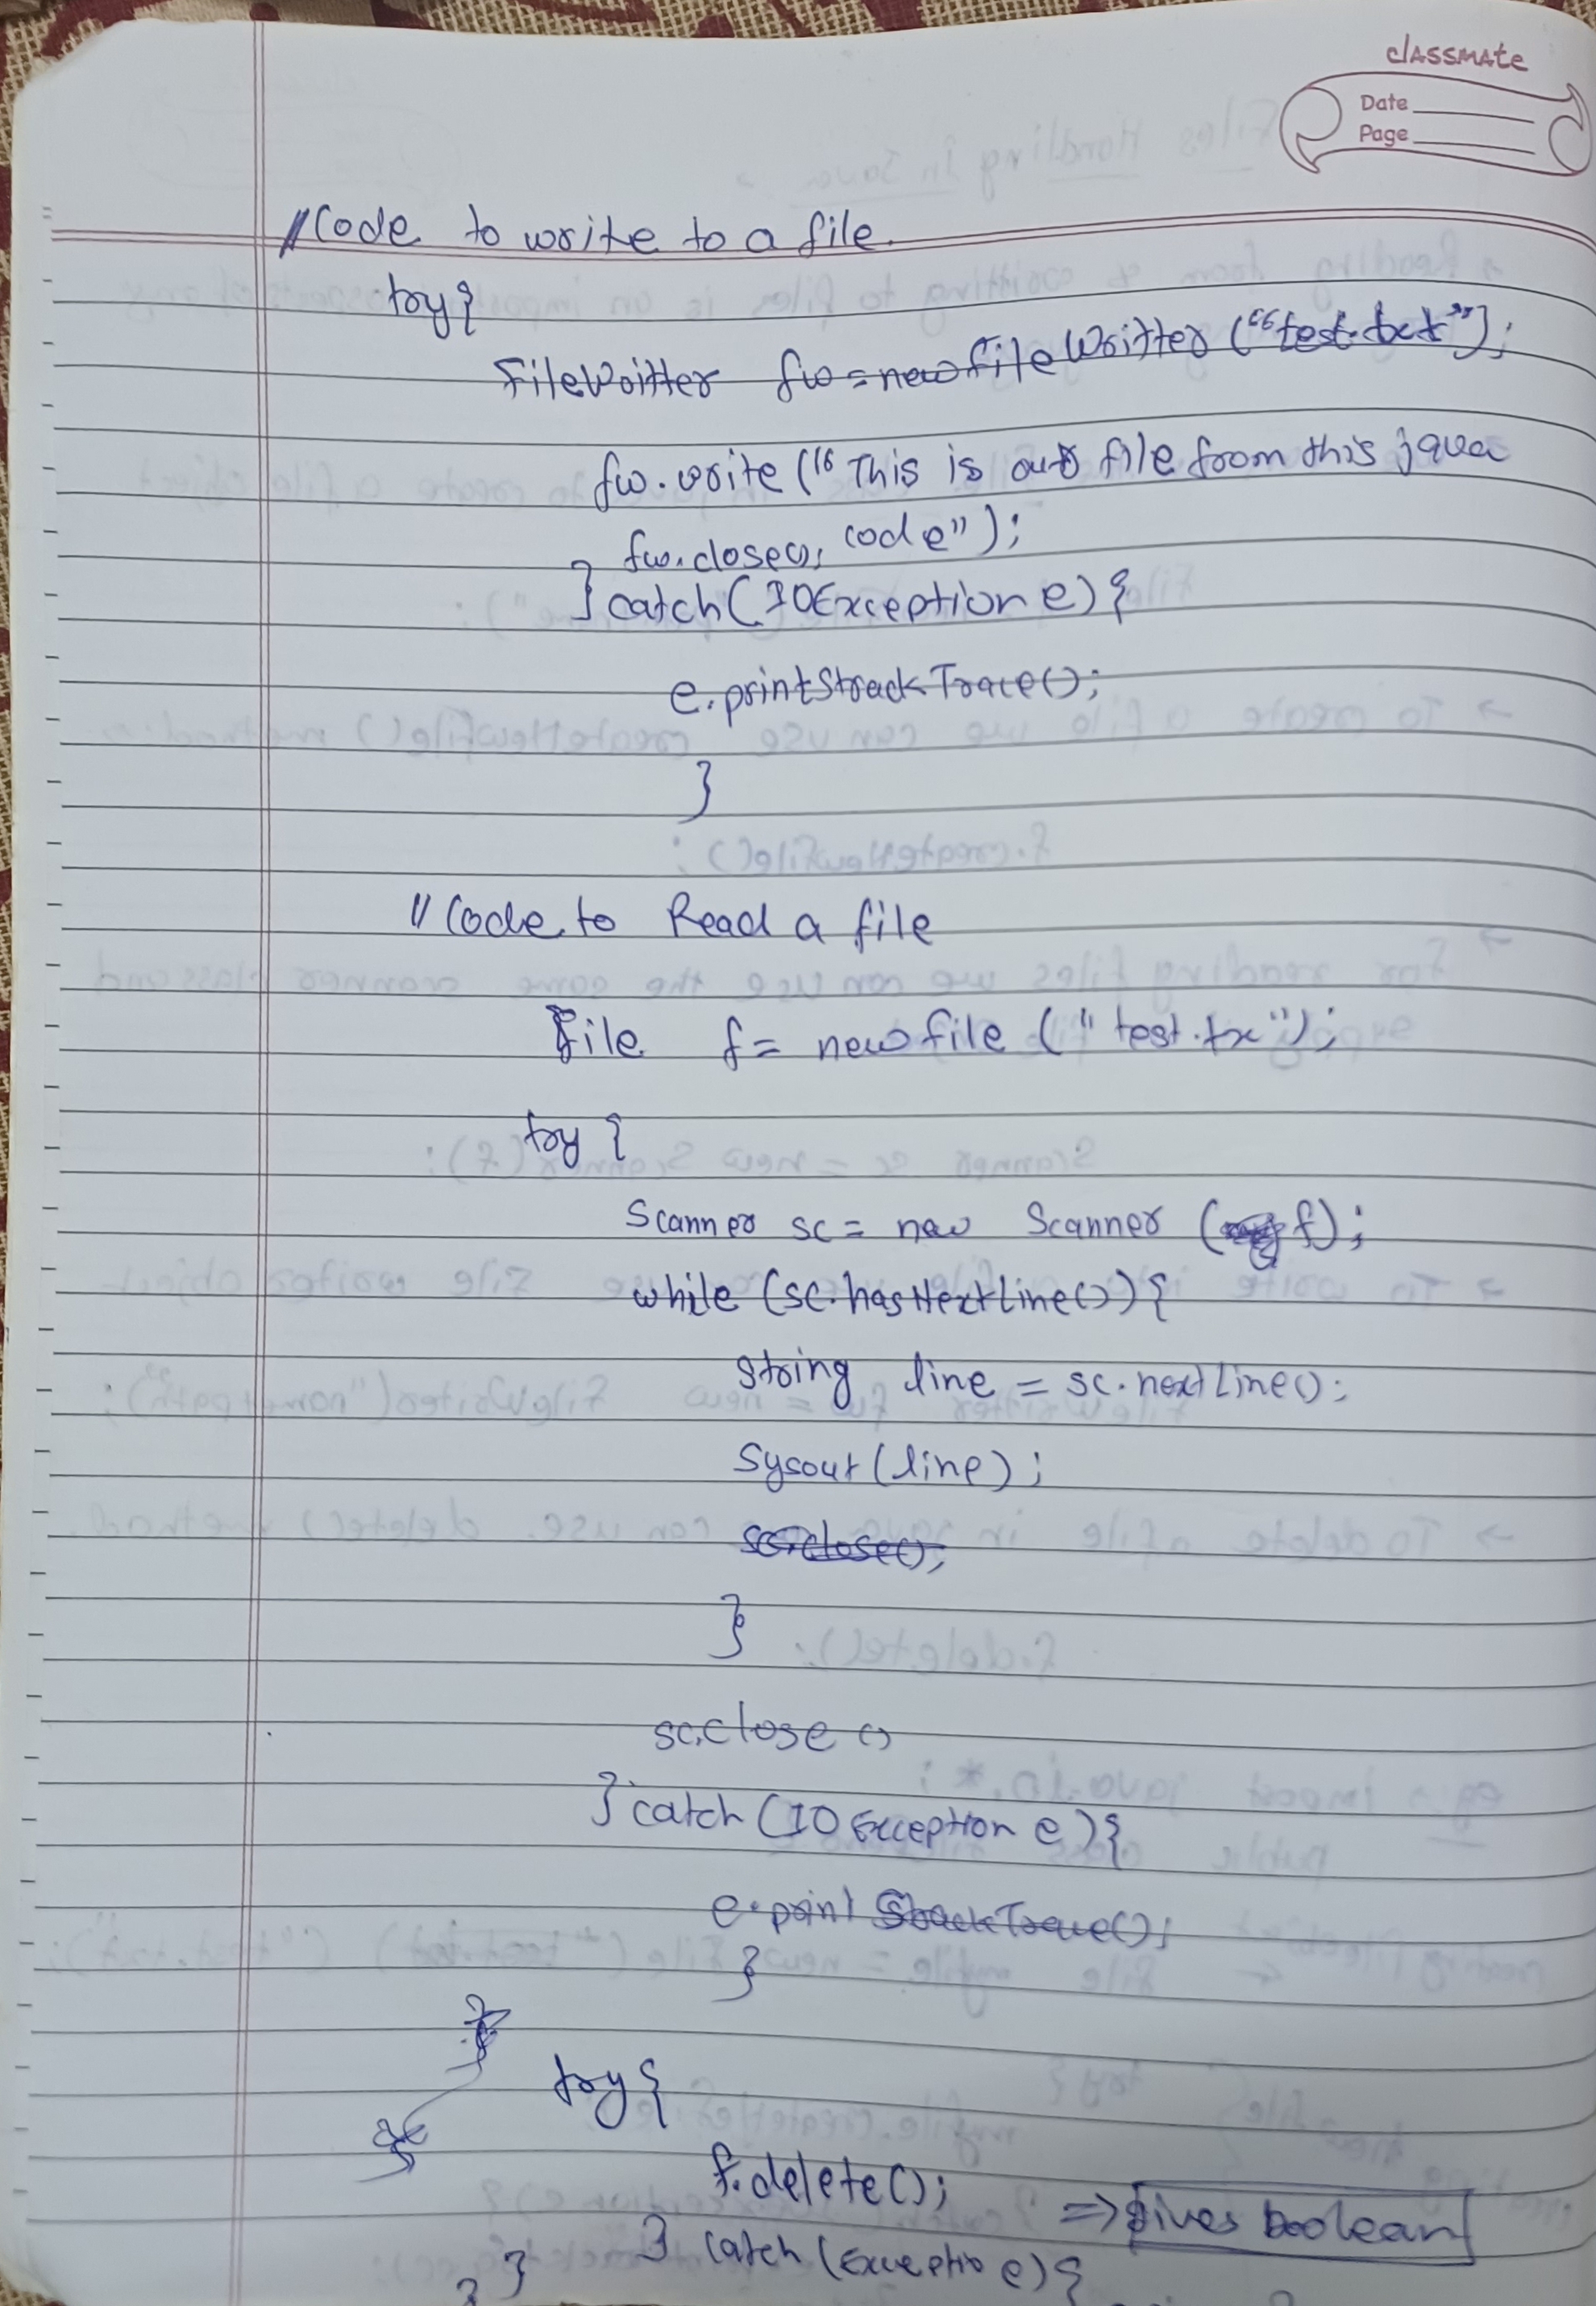 classmate
Date
Page
//Code to write to a file.
try{
FileWritter fw = new fileWritter ("test.txt");
fw.write ("This is our file from this java
code");
fw.close();
} catch (IOException e) {
e.printStrackTrace();
}
// Code to Read a file
File f = new file ("test.tx");
try {
Scanner sc = new Scanner (f);
while (sc.hasNextLine()) {
String line = sc.nextLine();
Sysout (line);
sc.close();
}
sc.close ()
} catch (IO Exception e) {
e.print StackTrace();
}
try {
f.delete(); => gives boolean
} catch (Exceptio e) {
}